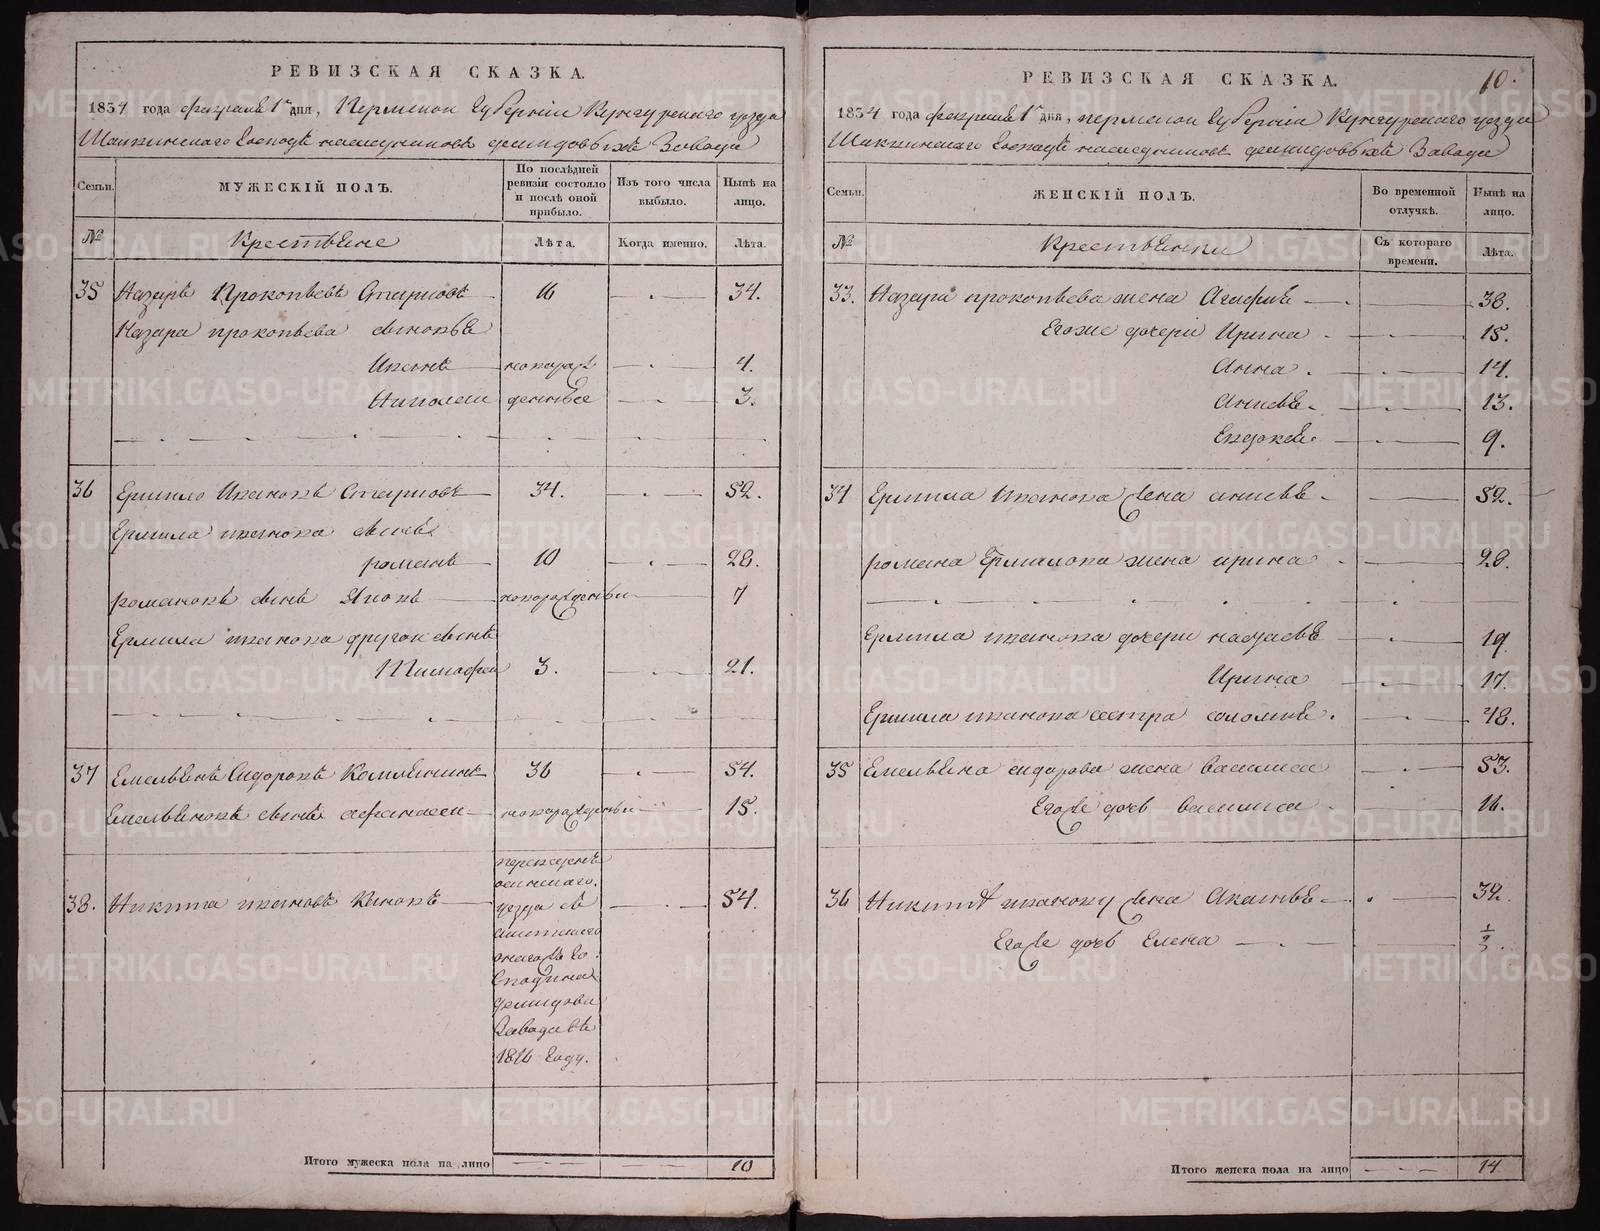 РЕВИЗСКАЯ СКАЗКА.
1834 года февраля 1го дня, Пермской Губернiи Кунгурского уезда
Шаквинского Господъ наследниковъ Демидовыхъ Завода
Семьи.
МУЖЕСКIЙ ПОЛЪ.
По послѣдней ревизiи состояло и послѣ оной прибыло.
Изъ того числа выбыло.
Нынѣ на лицо.
№
Крестьяне
Лѣта.
Когда именно.
Лѣта.
35 Назаръ Прокопьевъ Стариковъ 16 34.
Назара прокопьева сыновья
новорож 4.
Николай денные 3.
36 Ермило Ивановъ Стариковъ 34. 52.
Ермила иванова сынъ
романъ 10 28.
романовъ сынъ Яковъ новорожденный 7
Ермила иванова другой сынъ
Тимофей 3. 21.
37 Емельянъ Сидоровъ 36 54.
Емельяновъ сынъ афанасей новорожденный 15.
38. Никита ивановъ 54.
переведенъ
осинского
уезда съ
онагожъ го
сподина
демидова
Завода въ
1816 году.
Итого мужеска пола на лицо 10
РЕВИЗСКАЯ СКАЗКА.
10.
1834 года февраля 1го дня, пермской Губернiи Кунгурского уезда
Шаквинского Господъ наследниковъ демидовыхъ Завода
Семьи.
ЖЕНСКIЙ ПОЛЪ.
Во временной отлучкѣ.
Нынѣ на лицо.
№
Крестьянки
Съ котораго времени.
Лѣта.
33. Назара прокопьева жена Агафья 38.
Егоже дочери Ирина 15.
Анна 14.
Анисья 13.
Евдокея 9.
34 Ермила иванова жена анисья 52.
романа Ермилова жена ирина 28.
Ермила иванова дочери настасья 19.
Ирина 17.
Ермила иванова сестра соломия 48.
35 Емельяна сидорова жена василиса 53.
Егоже дочь василиса 16.
36 Никиты иванову жена 39.
Егоже дочь Елена 1/2.
Итого женска пола на лицо 14
METRIKI.GASO-URAL.RU